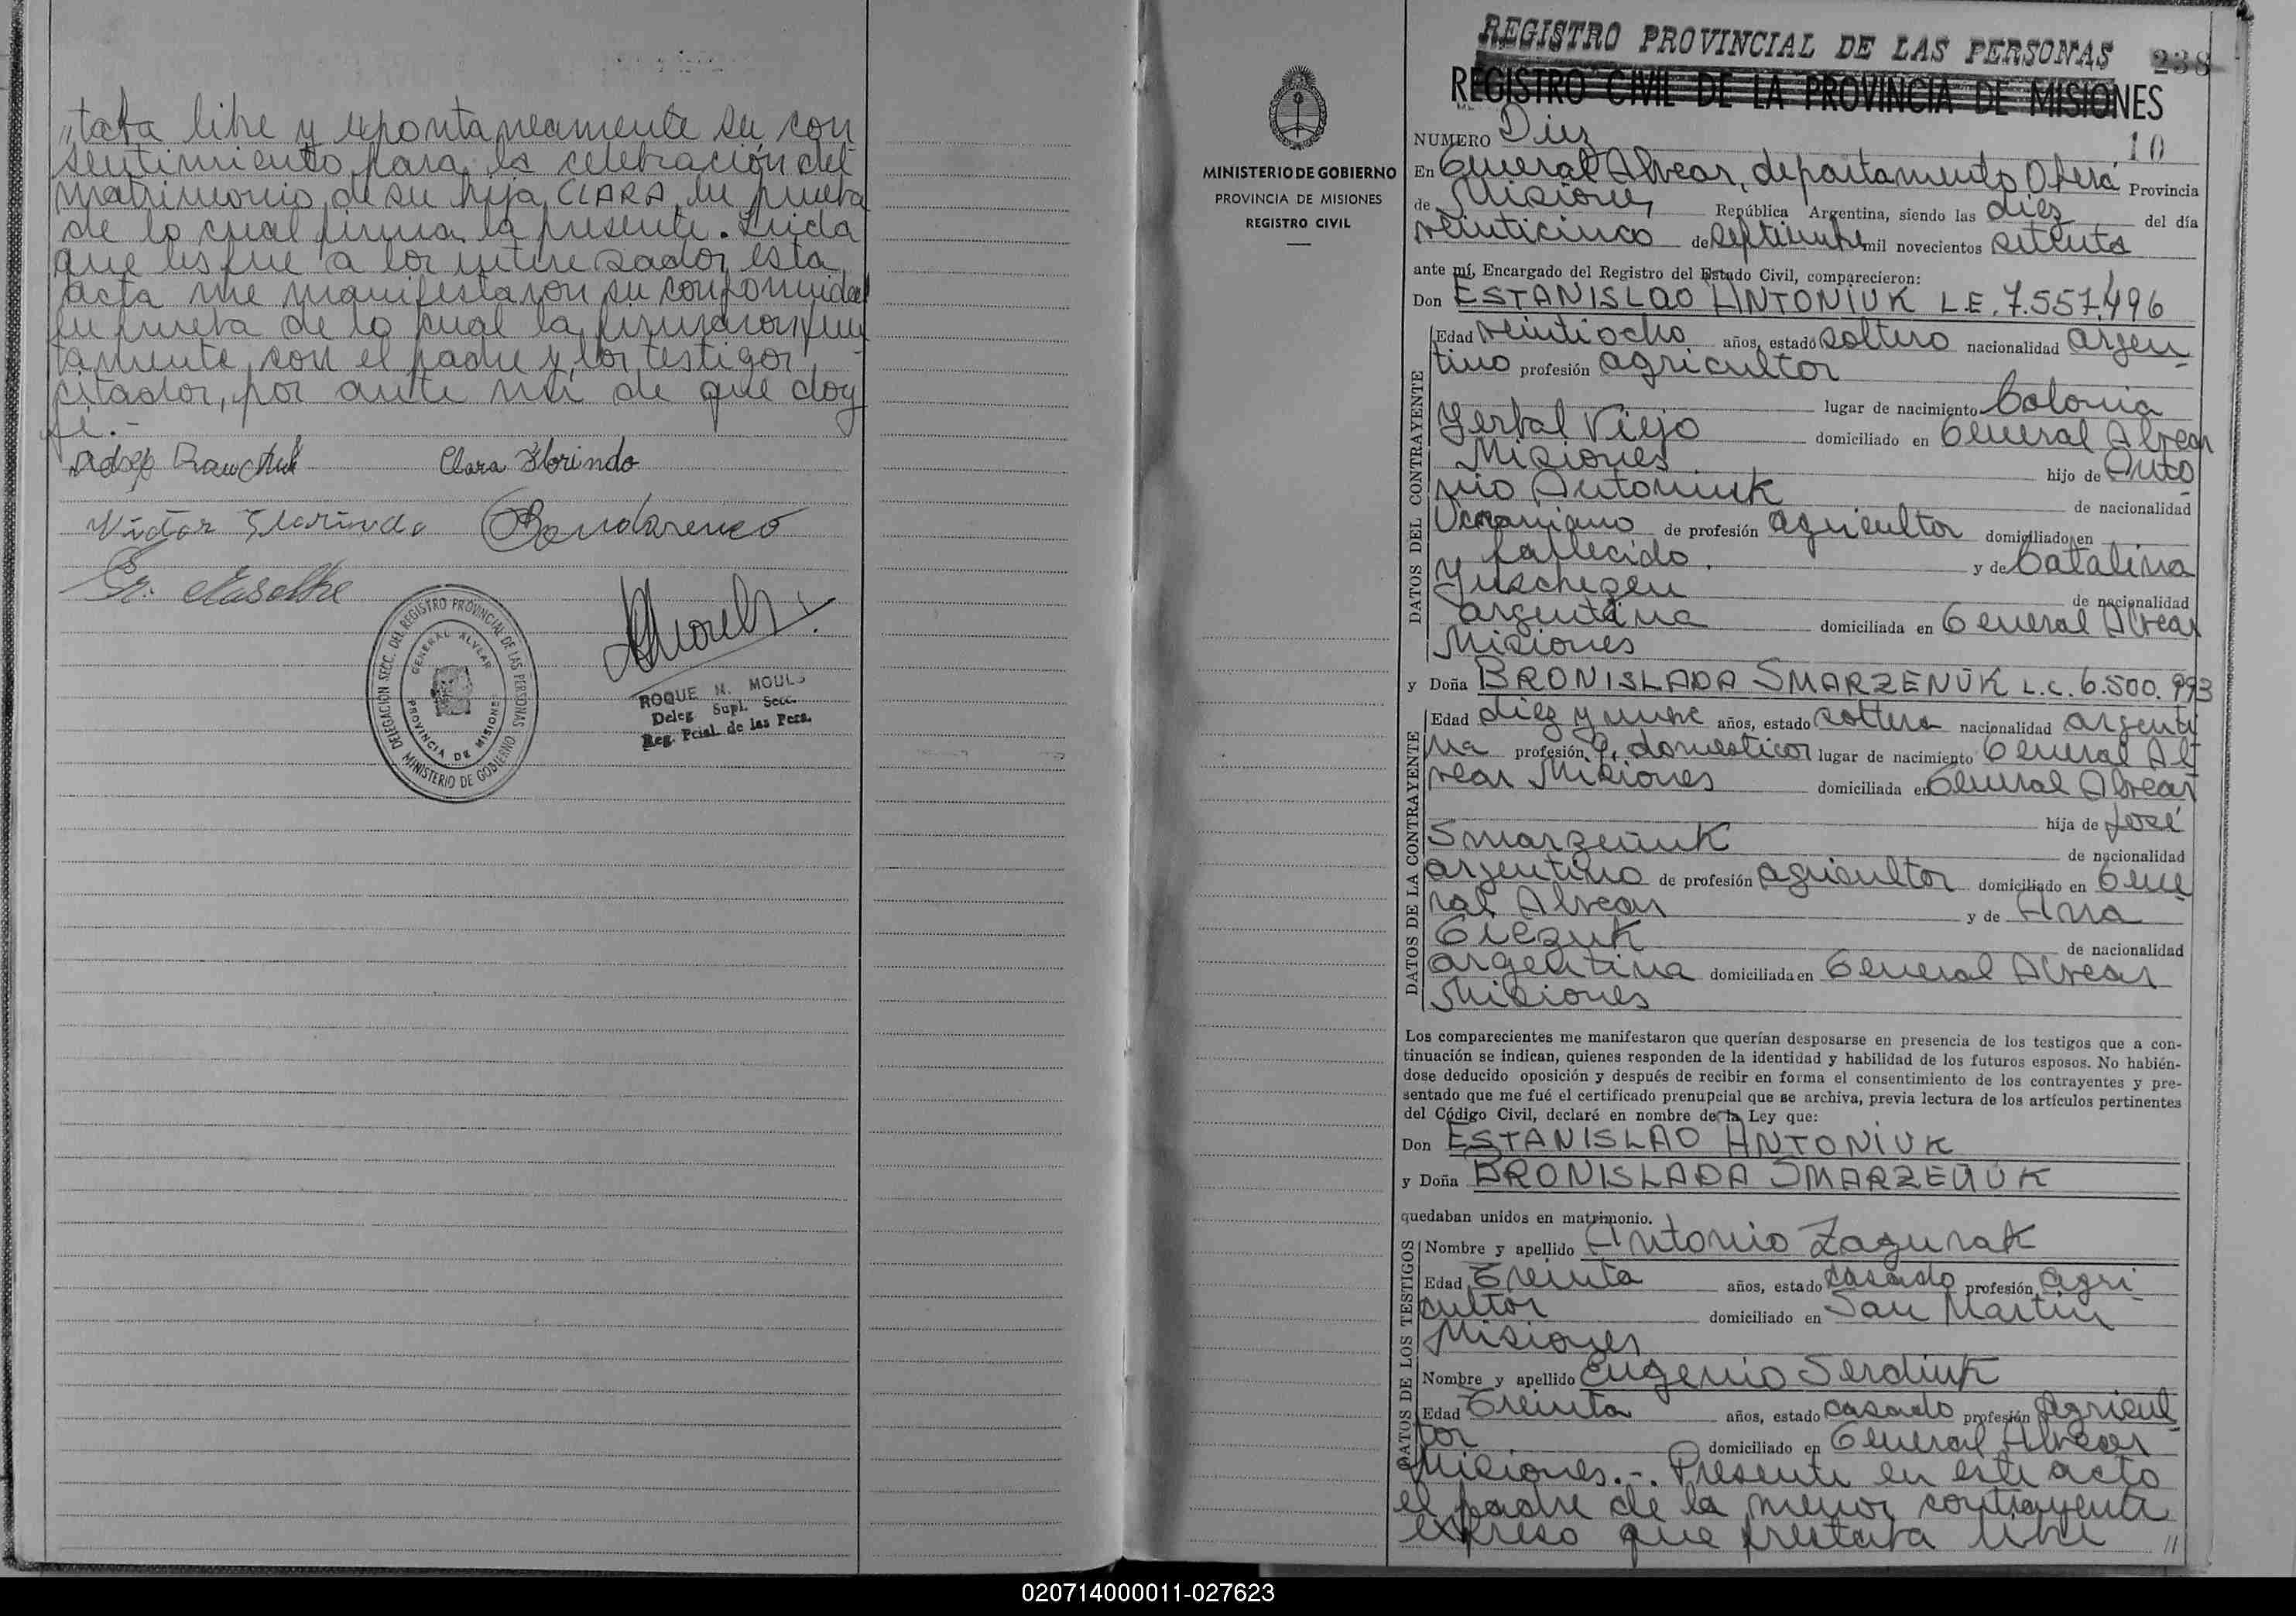 "taba libre y espontaneamente su con
sentimiento para la celebración del
matrimonio de su hija CLARA en prueba
de lo cual firma la presente. Leída
que les fue a los interesados esta
acta me manifestaron su conformidad
en prueba de lo cual la firmaron jun
tamente con el padre y los testigos
citados, por ante mí de que doy
fe.-
Clara Florindo
Victor Florindo Bondarenco
DELEGACION SECC. DEL REGISTRO PROVINCIAL DE LAS PERSONAS
MINISTERIO DE GOBIERNO
GENERAL ALVEAR
PROVINCIA DE MISIONES
ROQUE N. MOULS
Deleg. Supl. Secc.
Reg. Pcial. de las Pers.
MINISTERIO DE GOBIERNO
PROVINCIA DE MISIONES
REGISTRO CIVIL
REGISTRO PROVINCIAL DE LAS PERSONAS 238
REGISTRO CIVIL DE LA PROVINCIA DE MISIONES
NUMERO Diez 10
En General Alvear, departamento Oberá Provincia
de Misiones República Argentina, siendo las diez del día
veinticinco de septiembre mil novecientos setenta
ante mí, Encargado del Registro del Estado Civil, comparecieron:
Don ESTANISLAO ANTONIUK L.E. 7.557.496
DATOS DEL CONTRAYENTE
Edad veintiocho años, estado soltero nacionalidad argen
tino profesión agricultor
lugar de nacimiento Colonia
Yerbal Viejo domiciliado en General Alvear
Misiones hijo de Anto
nio Antoniuk de nacionalidad
Ucraniano de profesión agricultor domiciliado en
fallecido. y de Catalina
Yuschezen de nacionalidad
argentina domiciliada en General Alvear
Misiones
y Doña BRONISLADA SMARZEÑUK L.C. 6.500.993
DATOS DE LA CONTRAYENTE
Edad diez y nueve años, estado soltera nacionalidad argenti
na profesión q. domesticos lugar de nacimiento General Al
vear Misiones domiciliada en General Alvear
hija de José
Smarzeñuk de nacionalidad
argentino de profesión agricultor domiciliado en Gene
ral Alvear y de Ana
de nacionalidad
argentina domiciliada en General Alvear
Misiones
Los comparecientes me manifestaron que querían desposarse en presencia de los testigos que a con-
tinuación se indican, quienes responden de la identidad y habilidad de los futuros esposos. No habién-
dose deducido oposición y después de recibir en forma el consentimiento de los contrayentes y pre-
sentado que me fué el certificado prenupcial que se archiva, previa lectura de los artículos pertinentes
del Código Civil, declaré en nombre de la Ley que:
Don ESTANISLAO ANTONIUK
y Doña BRONISLADA SMARZEÑUK
quedaban unidos en matrimonio.
DATOS DE LOS TESTIGOS
Nombre y apellido Antonio Zagurak
Edad Treinta años, estado casado profesión agri
cultor domiciliado en San Martin
Misiones
Nombre y apellido Eugenio Serdiuk
Edad Treinta años, estado casado profesión Agricul
tor domiciliado en General Alvear
Misiones.-. Presente en este acto
el padre de la menor contrayente
expreso que prestaba libre //
020714000011-027623